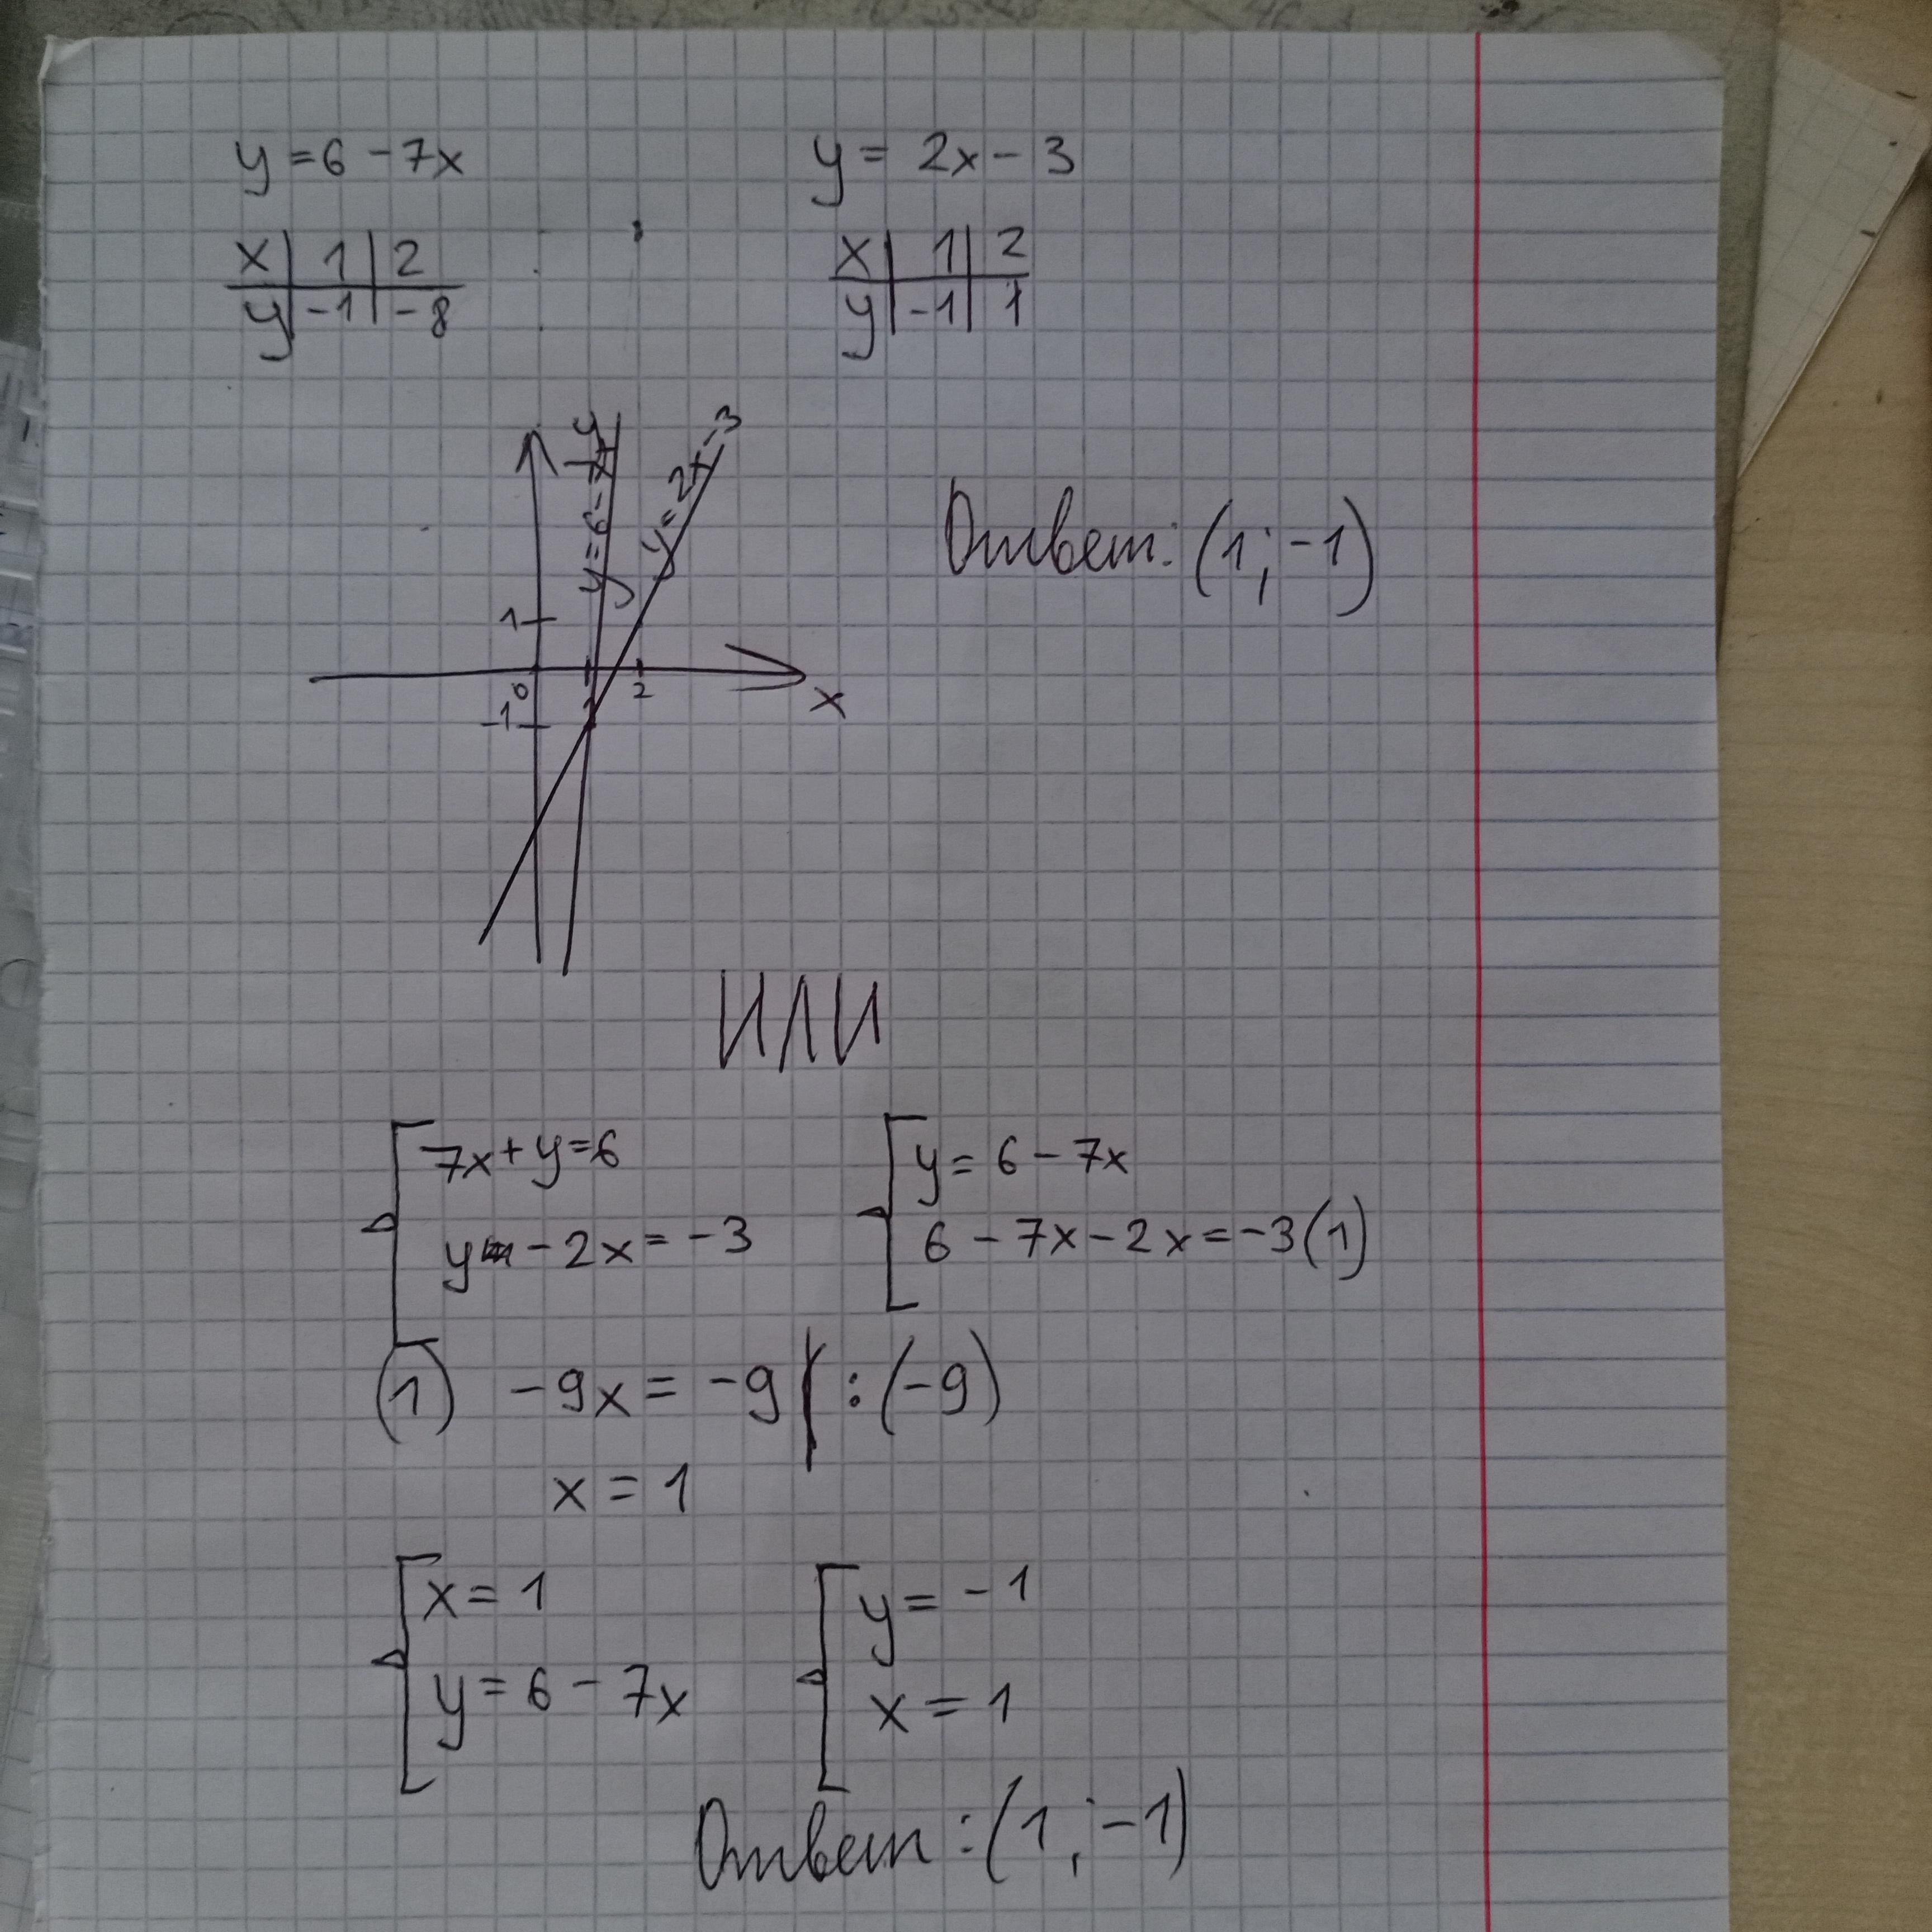 y = 6 - 7x
y = 2x - 3
x | 1 | 2
y | -1 | -8
x | -1 | 2
y | -1 | 1
y
y = 6 - 7x
y = 2x - 3
1
0
1
2
x
-1
Ответ: (1; -1)
ИЛИ
7x + y = 6
y - 2x = -3
y = 6 - 7x
6 - 7x - 2x = -3 (1)
(1) -9x = -9 | : (-9)
x = 1
x = 1
y = 6 - 7x
y = -1
x = 1
Ответ: (1; -1)